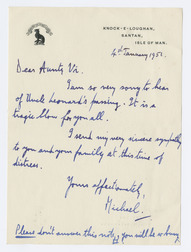 KNOCK-E-LOUGHAN,
SANTAN,
ISLE OF MAN.
4th January 1952.
Dear Aunty Vi.
I am so very sorry to hear
of Uncle Leonard's passing. It is a
tragic blow for you all.
I send my very sincere sympathy
to you and your family at this time of
distress.
Yours affectionately,
Michael.
Please don't answer this note, you will be so busy